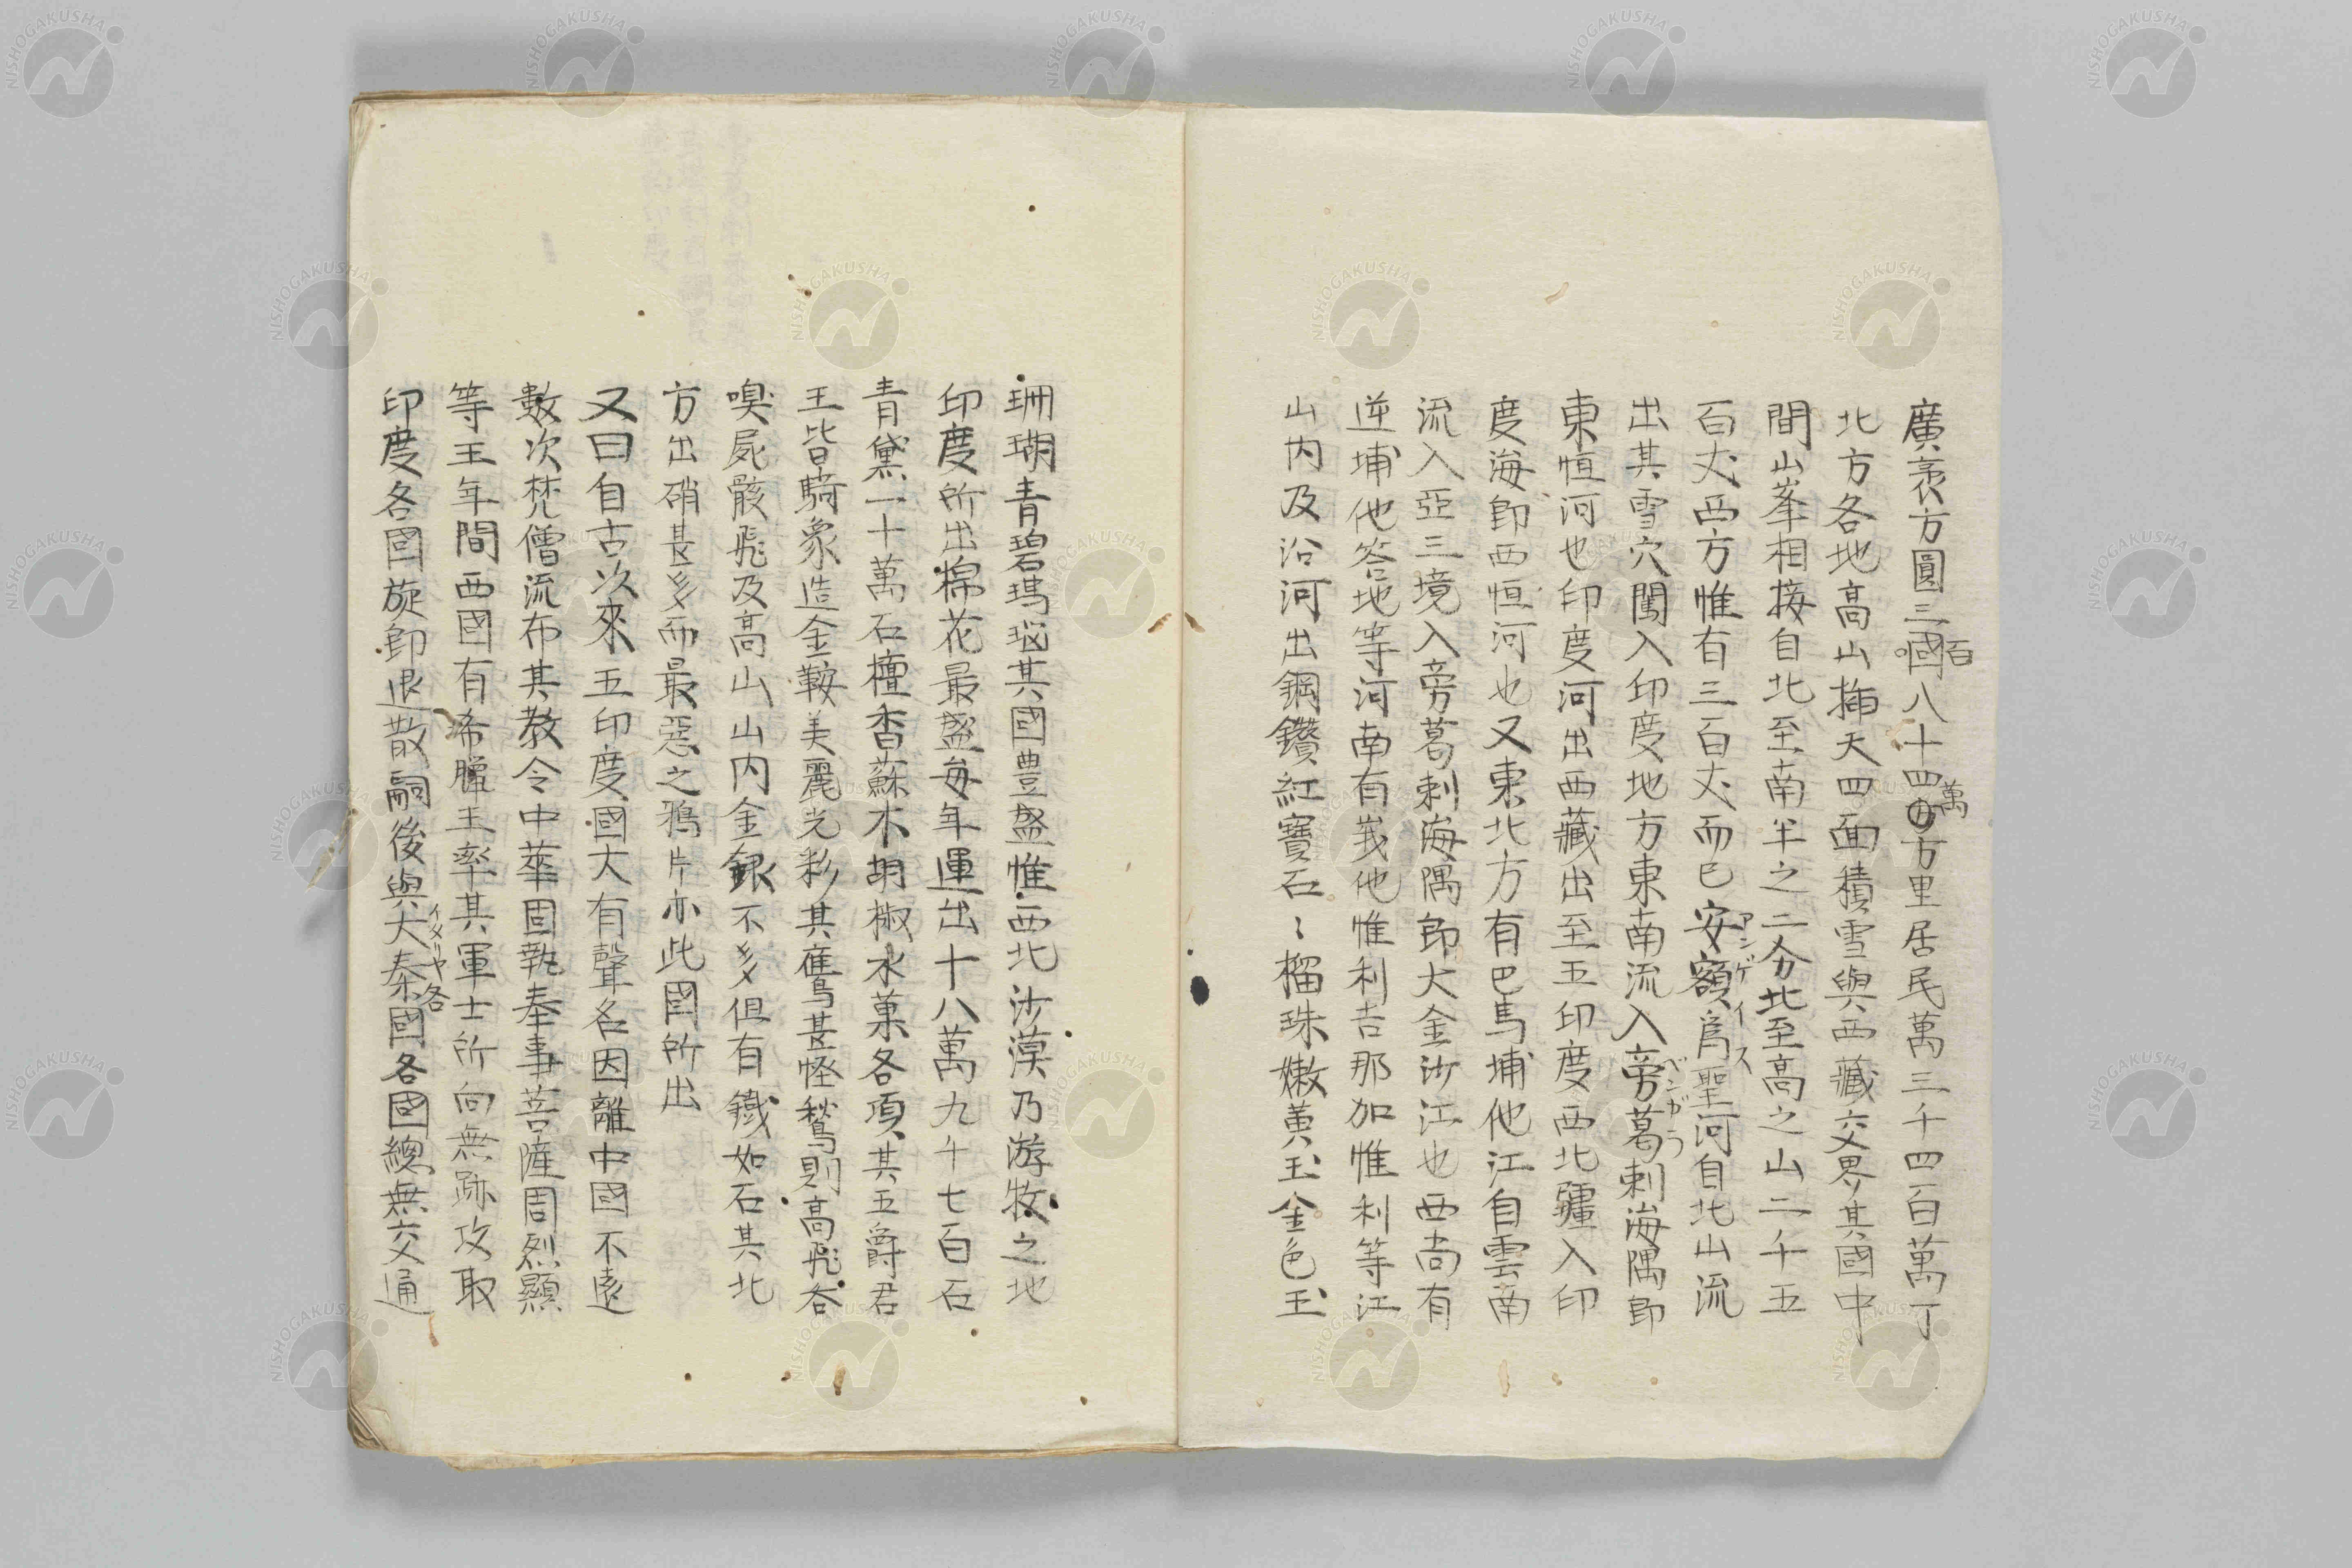 廣袤方圓三國百八十四萬方里居民萬三千四百萬丁
北方各地高山插天四面積雪與西藏交界其國中
間山峯相接自北至南半之二分北至高之山二千五
百丈西方惟有三百丈而已安額アンゲイス爲聖河自北山流
出其雪穴闖入印度地方東南流入旁葛剌ベンガラ海隅即
東恒河也印度河出西藏出至五印度西北疆入印
度海即西恒河也又東北方有巴馬埔他江自雲南
流入亞三境入旁葛剌海隅即大金沙江也西尚有
逆埔他答地等河南有峩他惟利吉那加惟利等江
山内及沿河出鋼鑽紅寶石〻榴珠嫩黃玉金色玉
珊瑚青碧瑪瑙其國豊盛惟西北沙漠乃游牧之地
印度所出棉花最盛每年運出十八萬九千七百石
青黛一十萬石檀香蘇木胡椒水菓各項其五爵君
王皆騎象造金鞍美麗光彩其鷹甚怪鶖則高飛若
嗅屍骸飛及高山山内金銀不多但有鐵如石其北
方出硝甚多而最惡之鴉片亦此国所出
又曰自古以來五印度國大有聲名因離中國不遠
數次梵僧流布其教令中華固執奉事菩薩周烈顯
等王年間西國有希臘王率其軍士所向無跡攻取
印度各國旋即退散嗣後與大秦イタリヤ國各各國總無交通
NISHOGAKUSHA